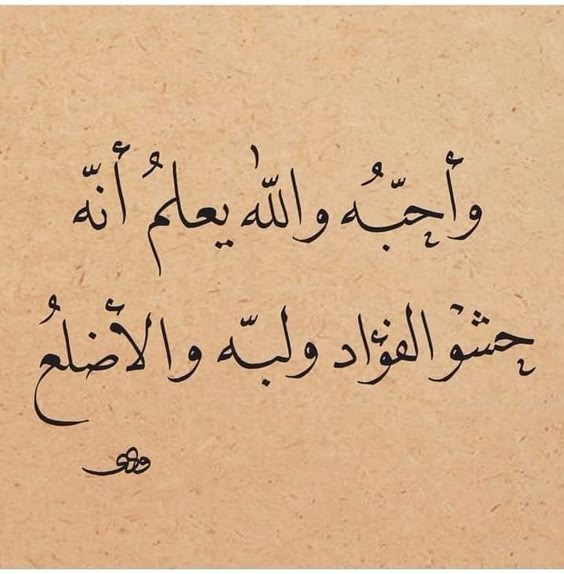 وأحبّه واللّٰه يعلمُ أنّه
حشو الفؤاد ولبّه والأضلعُ